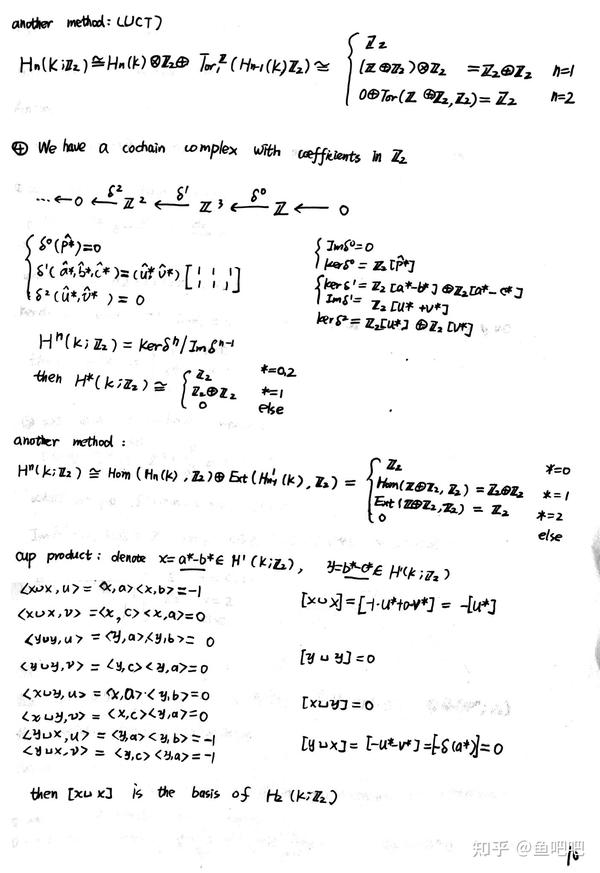 another method: (UCT)
Hn(K;ℤ2)≅Hn(K)⊗ℤ2⊕ Tor₁^ℤ(Hn-1(K)ℤ2)≅ { ℤ2
(ℤ⊕ℤ2)⊗ℤ2 =ℤ2⊕ℤ2 n=1
0⊕Tor(ℤ⊕ℤ2,ℤ2)= ℤ2 n=2
⊕ We have a cochain complex with coefficients in ℤ2
… ← 0 ←δ² ℤ² ←δ¹ ℤ³ ←δ⁰ ℤ ← 0
{ δ⁰(p̂*)=0
δ¹(â*,b̂*,ĉ*)=(û* v̂*) [1 1 1; 1 1 1]
δ²(û*,v̂*) = 0
{ Imδ⁰=0
kerδ⁰= ℤ2[p̂*]
{ kerδ¹=ℤ2[a*-b*]⊕ℤ2[a*-c*]
Imδ¹= ℤ2[u*+v*]
kerδ²=ℤ2[u*]⊕ℤ2[v*]
Hⁿ(K;ℤ2)=kerδⁿ/Imδⁿ⁻¹
then H*(K;ℤ2)≅ { ℤ2 *=0,2
ℤ2⊕ℤ2 *=1
0 else
another method:
Hⁿ(K;ℤ2)≅Hom(Hn(K),ℤ2)⊕Ext(Hn-1(K),ℤ2)= { ℤ2 *=0
Hom(ℤ⊕ℤ2,ℤ2)=ℤ2⊕ℤ2 *=1
Ext(ℤ⊕ℤ2,ℤ2)= ℤ2 *=2
0 else
cup product: denote x=a*-b*∈H¹(K;ℤ2), y=b*-c*∈H¹(K;ℤ2)
<x∪x,u>=<x,a><x,b>=-1
<x∪x,v>=<x,c><x,a>=0
[x∪x]=[-1·u*+0·v*]= -[u*]
<y∪y,u>=<y,a><y,b>= 0
<y∪y,v>=<y,c><y,a>=0
[y∪y]=0
<x∪y,u>=<x,a>·<y,b>=0
<x∪y,v>=<x,c><y,a>=0
[x∪y]=0
<y∪x,u>=<y,a><y,b>=-1
<y∪x,v>=<y,c><y,a>=-1
[y∪x]=[-u*-v*]=[-δ(a*)]=0
then [x∪x] is the basis of H₂(K;ℤ2)
知乎 @鱼吧吧